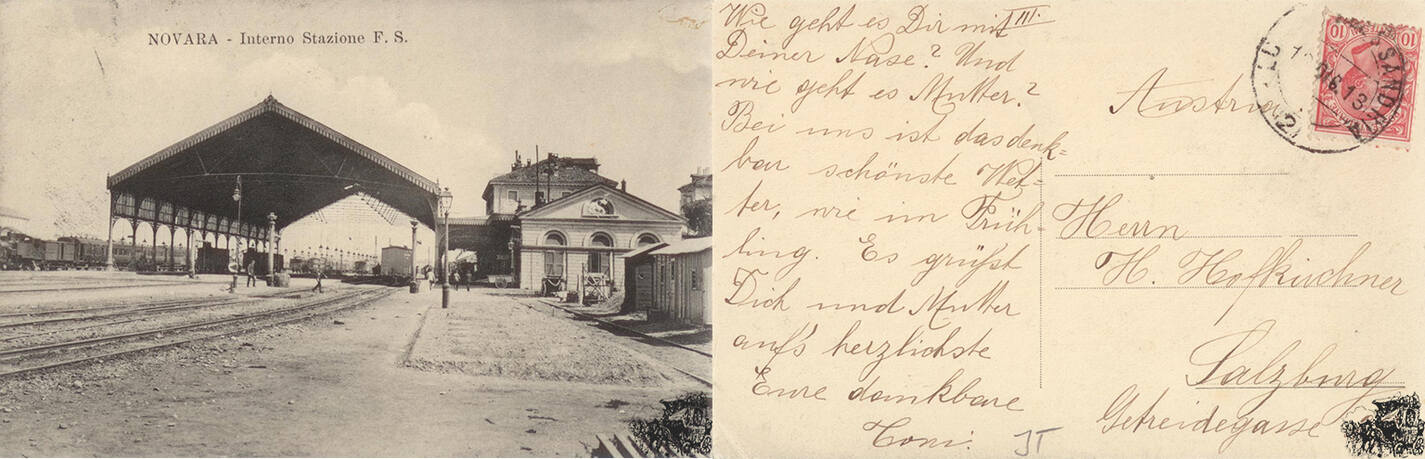 NOVARA - Interno Stazione F. S.
III.
Wie geht es Dir mit
Deiner Nase? Und
wie geht es Mutter?
Bei uns ist das denk=
bar schönste Wet=
ter, wie im Früh=
ling. Es grüßt
Dich und Mutter
auf's herzlichste
Eure dankbare
Toni.
JT
10
10
13
Austria
Herrn
H. Hofkirchner
Salzburg
Getreidegasse